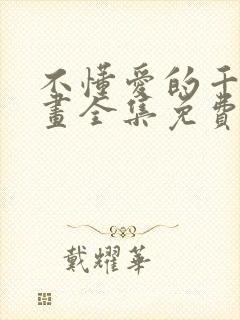 不懂愛的千
畫全集免費
戴耀華